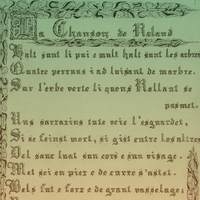 La Chanson de Roland
Halt sunt li pui e mult halt sunt les arbres
Quatre perruns i ad luisant de marbre.
Sur l'erbe verte li quens Rollant se
pasmet.
Uns sarrazins tute veie l'esguardet,
Si se feinst mort, si gist entre les altres
Del sanc luat sun cors e sun visage.
Met sei en piez e de curre s'astet.
Bels fut e forz e de grant vasselage;